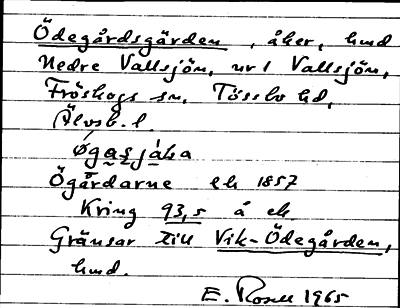 Ödegårdsgärden, åker, hmd
Nedre Vallsjön, nr 1 Vallsjön,
Fröskogs sn, Tössbo hd,
Älvsb. l.
Øgas̱jáḵa
Ögårdarne ek 1857
Kring 93,5 å ek.
Gränsar till Vik-Ödegården,
hmd.
E. Rosell 1965